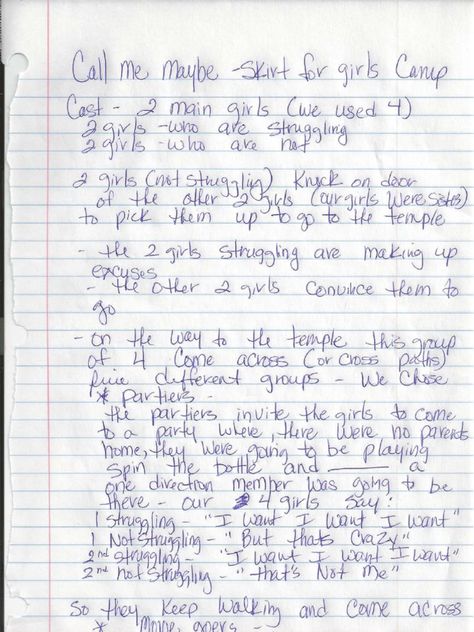 Call Me Maybe - Skirt for girls Camp
Cast - 2 main girls (we used 4)
2 girls - who are struggling
2 girls - who are not
2 girls (not struggling) Knock on door
of the other 2 girls (our girls were sisters)
to pick them up to go to the temple
- the 2 girls struggling are making up
excuses
- the other 2 girls convince them to
go
- on the way to the temple this group
of 4 come across (or cross paths)
five different groups - We Chose
* Partiers -
the partiers invite the girls to come
to a party where, there were no parents
home, they were going to be playing
spin the bottle and ______ a
one direction member was going to be
there - our 4 girls say:
1 struggling - "I want I want I want"
1 Not Struggling - "But thats Crazy"
2nd struggling - "I want I want I want"
2nd not struggling - "that's Not me"
So they keep walking and come across
* Movie goers -